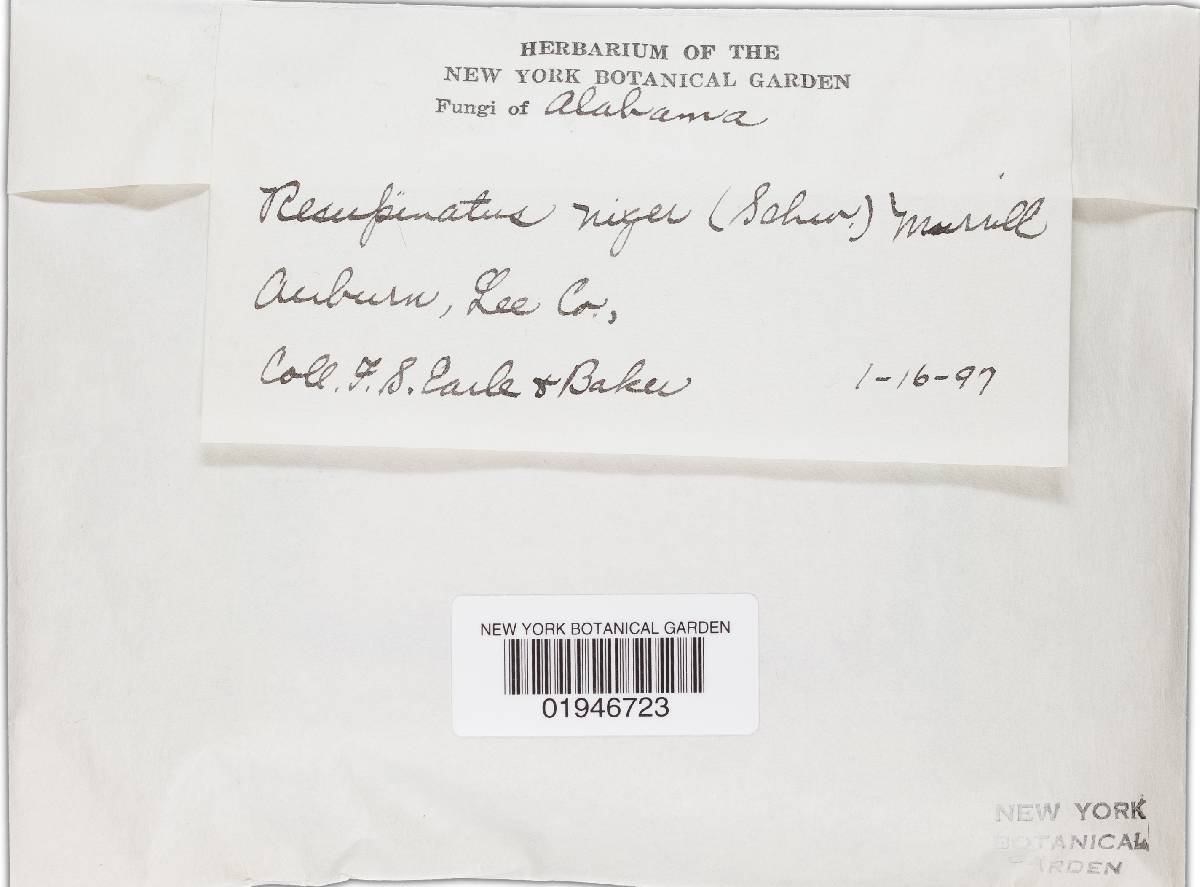 HERBARIUM OF THE
NEW YORK BOTANICAL GARDEN
Fungi of Alabama
Resupinatus niger (Schw.) Murrill
Auburn, Lee Co.,
Coll. F. S. Earle & Baker 1-16-97
NEW YORK BOTANICAL GARDEN
01946723
NEW YORK
BOTANICAL
GARDEN